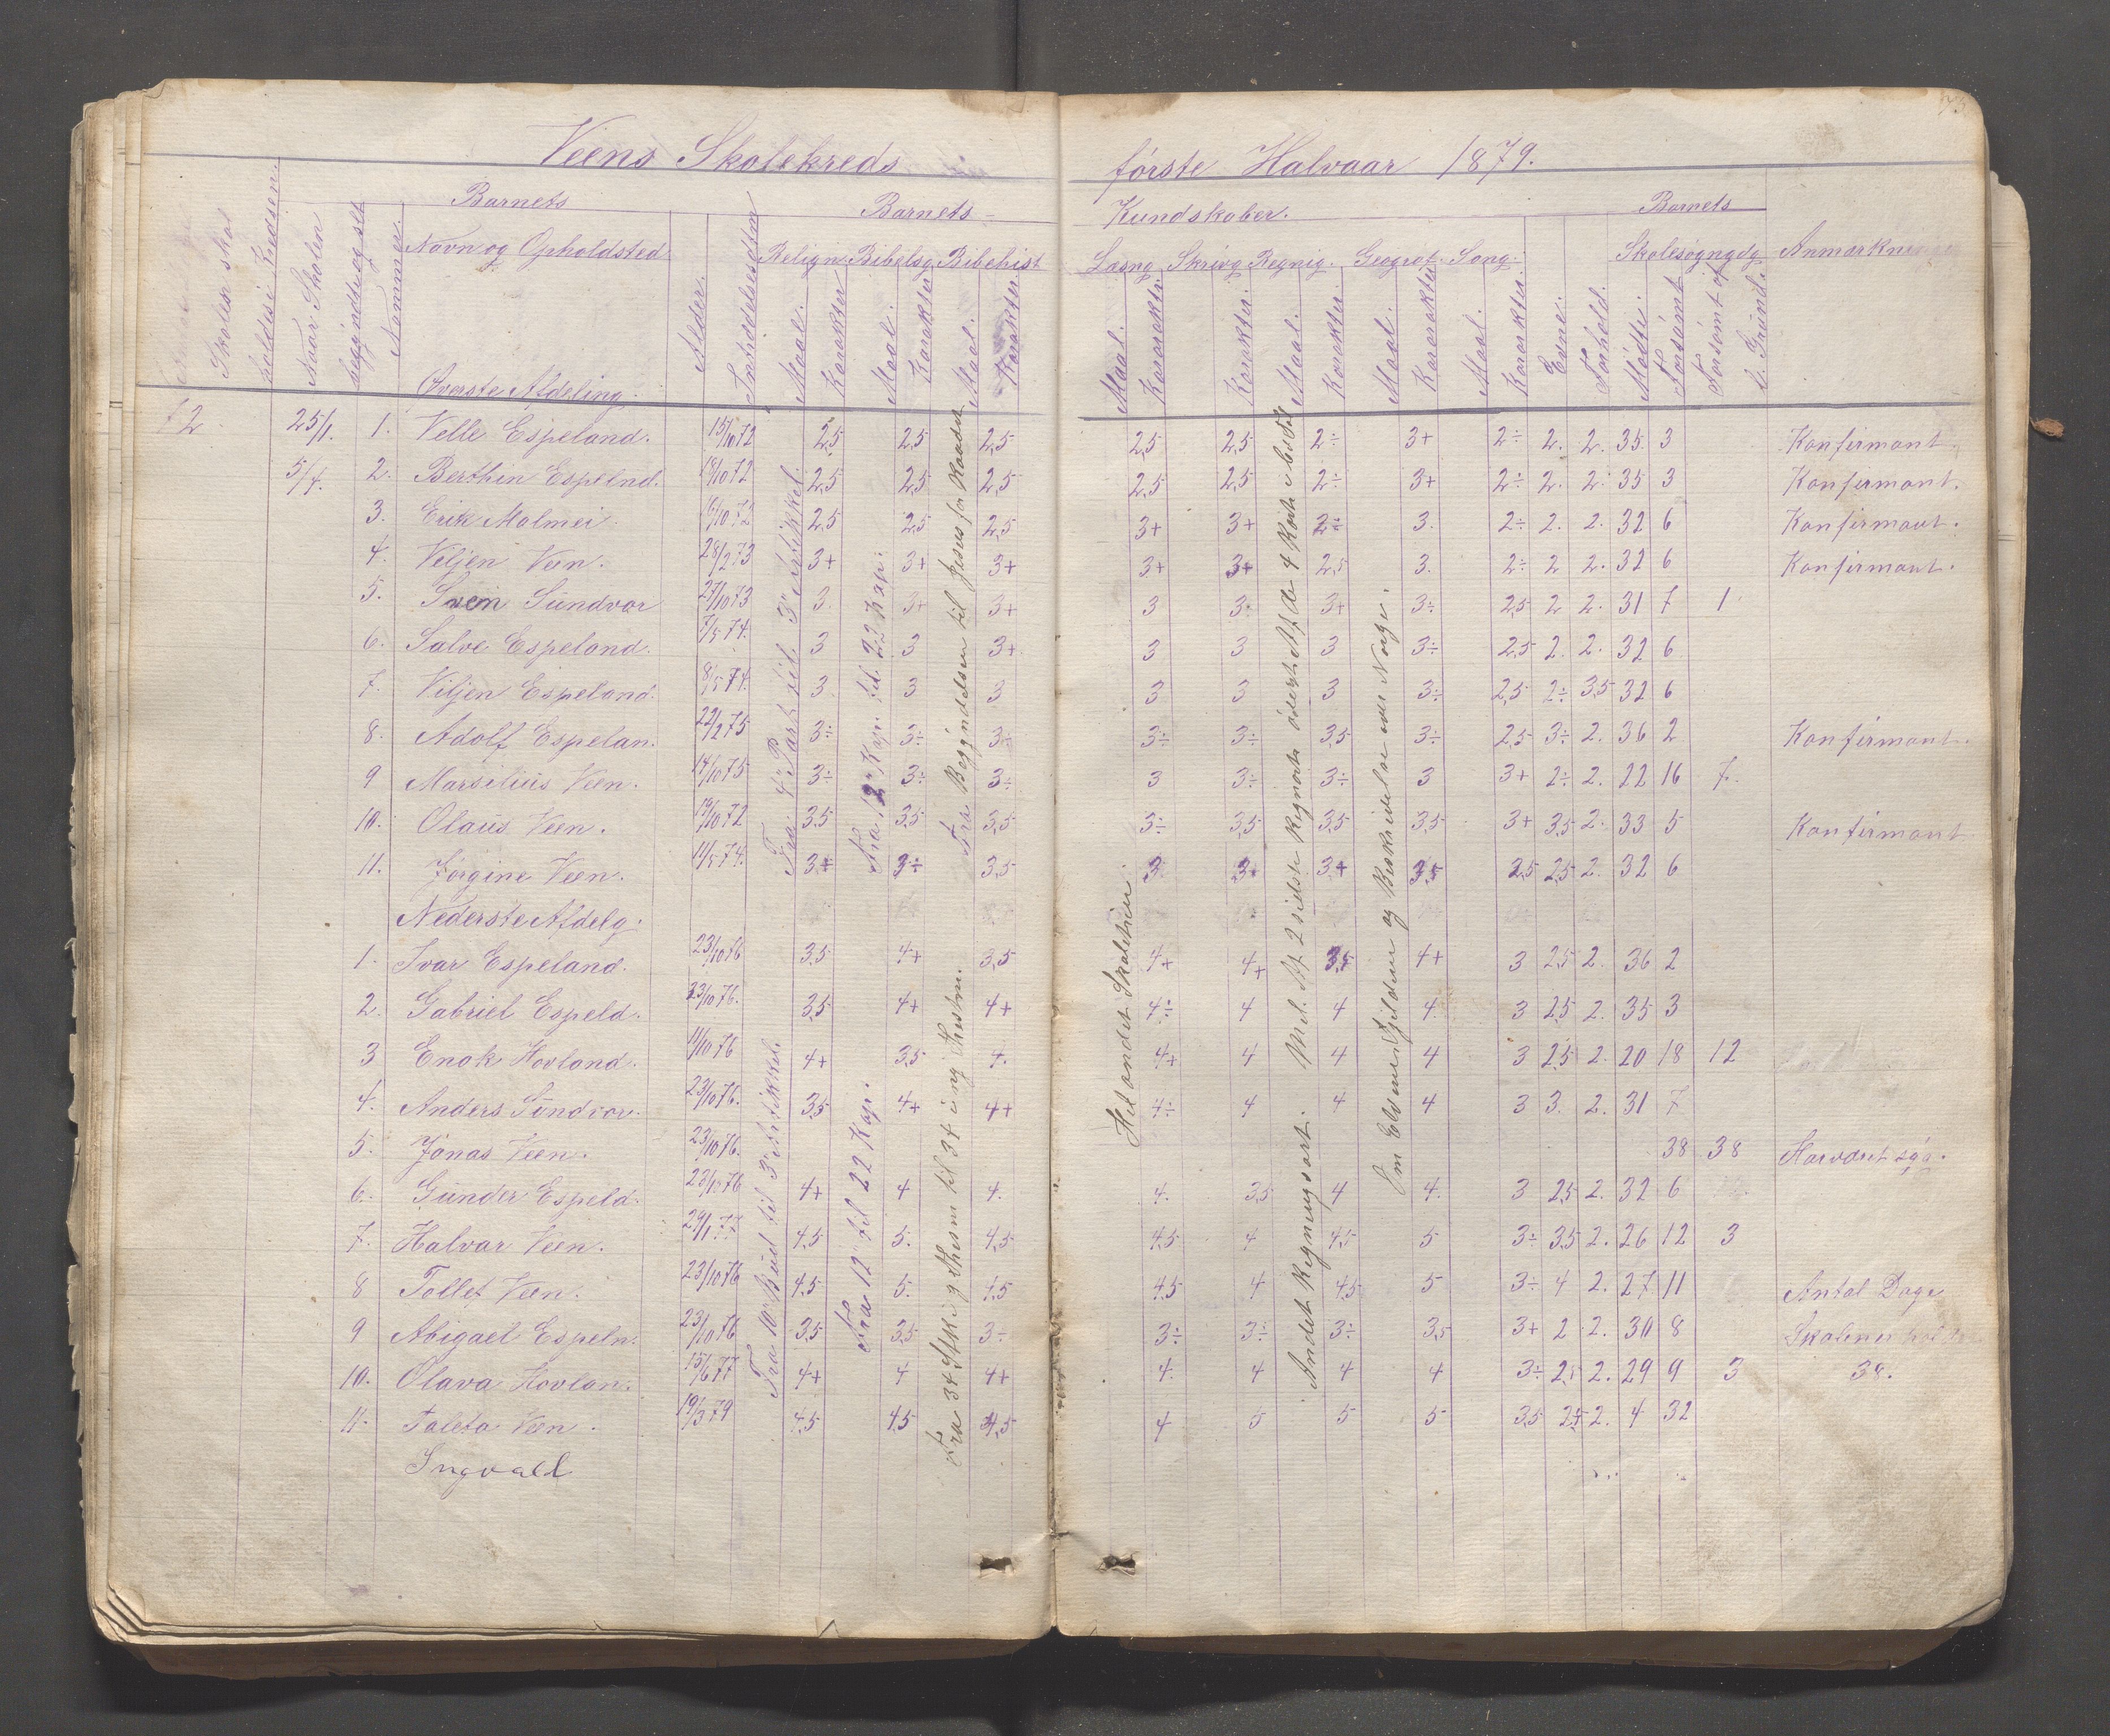 Veens Skolekreds første Halvaar 1879.
73
Barnets Barnets Kundskaber. Barnets
Skolen skal holdes i Kredsen.
Naar Skolen begyndte og slt
Nommer.
Navn og Opholdsted
Alder.
Indtrædelsesdtm
Relign. Bibelsg. Bibehist Læsng Skrivg Regnig. Geograf. Sang. Skolesøgngdg Anmærkninger
Maal. Karakter Maal. Karakter Maal. Karakter Maal. Kararakter. Karakter. Maal. Karakter. Maal. Kararakter Maal. Kararakter. Evne. Forhold. Mødte. Forsømt Forsømt af l. Grund.
Øverste Afdeling.
12 25/1. 1. Velle Espeland. 15/10 72 2,5 2,5 2,5 2,5 2,5 2÷ 3+ 2÷ 2. 2. 35 3 Konfirmant.
5/4. 2. Berthin Espelnd. 18/10 72 2,5 2,5 2,5 2,5 2,5 2÷ 3+ 2÷ 2. 2. 35 3 Konfirmant.
3. Erik Malmei. 16/10 72 2,5 2,5 2,5 3+ 3+ 2÷ 3. 2÷ 2. 2. 32 6 Konfirmant.
4. Veljen Veen. 28/2 73 3+ 3+ 3+ 3+ 3+ 2,5 3. 2÷ 2 2. 32 6 Konfirmant.
5. Svein Sundvor 27/10 73 3. 3+ 3+ 3 3. 3+ 3÷ 2,5 2 2. 31 7 1
6. Salve Espeland. 7/5 74. 3 3 3+ 3 3 3 3÷ 2,5 2. 2. 32 6
7. Viljen Espeland. 8/5 74. 3. 3 3 3 3 3 3÷ 2,5 2÷ 3,5 32 6
8. Adolf Espelan. 22/2 75 3÷ 3÷ 3÷ 3÷ 3÷ 3,5 3÷ 2,5 3÷ 2. 36 2 Konfirmant.
9 Marselius Veen. 14/10 75 3÷ 3÷ 3÷ 3 3÷ 3÷ 3 3+ 2÷ 2. 22 16 7.
10. Olaus Veen. 19/10 72 3,5 3,5 3,5 3÷ 3,5 3,5 3,5 3+ 3,5 2. 33 5 Konfirmant
11. Jørgine Veen. 11/5 74. 3+ 3÷ 3,5 3 3+ 3+ 3,5 2,5 2,5 2. 32 6
Nederste Afdelg.
1. Ivar Espeland. 23/10 76 3,5 4+ 3,5 4+ 4+ 3,5 4+ 3 2,5 2. 36 2
2. Gabriel Espeld. 23/10 76. 3,5 4+ 4+ 4÷ 4 4 4. 3 2,5 2. 35 3
3 Enok Hovland. 11/10 76 4+ 3,5 4. 4+ 4 4 4 3 2,5 2. 20 18 12
4. Anders Sundvor. 23/10 76. 3,5 4+ 4+ 4÷ 4 4 4 3 3. 2. 31 7
5. Jonas Veen. 23/10 76. 38 38 Harværet syg.
6. Gunder Espeld. 23/10 76 4+ 4 4. 4. 3,5 4 4. 3 2,5 2. 32 6
7. Halvar Veen. 29/1 77 4,5 5. 4,5 4,5 4 4,5 5 3÷ 3,5 2. 26 12 3
8 Tollef Veen. 23/10 76 4,5 5. 4,5 4,5 4 4,5 5 3÷ 4 2. 27 11 Antal Dage
9 Abigael Espeln. 23/10 76 3,5 3,5 3÷ 3÷ 3÷ 3÷ 3,5 3+ 2 2. 30 8 Skolener
10. Olava Hovlan. 15/6 77 4+ 4 4+ 4. 4 4 4 3÷ 2,5 2. 29 9 3 38.
11. Taleta Veen. 19/3 79 4,5 4,5 4,5 4 5 5 5 3,5 2,5 2. 4 32
Ingvald
Fra 4de Part til 3die Artikkel.
Fra 12te Kap. til 22 Kapi.
Fra Begyndelsen til Jesus for Raadet
Fra 10de Bud til 3die Artikkel.
Fra 12te til 22 Kap.
Fra 34 Stk. i g Thesm til 34 i ny Thestm.
Hel andet Skoletrin.
Med. Af. 2 sidste Regnearter øverst Af. de 4 Rart. i hel Tal
Andet Regningsart.
Om Elvene Fjeldene og Beskrivelse over Norge.